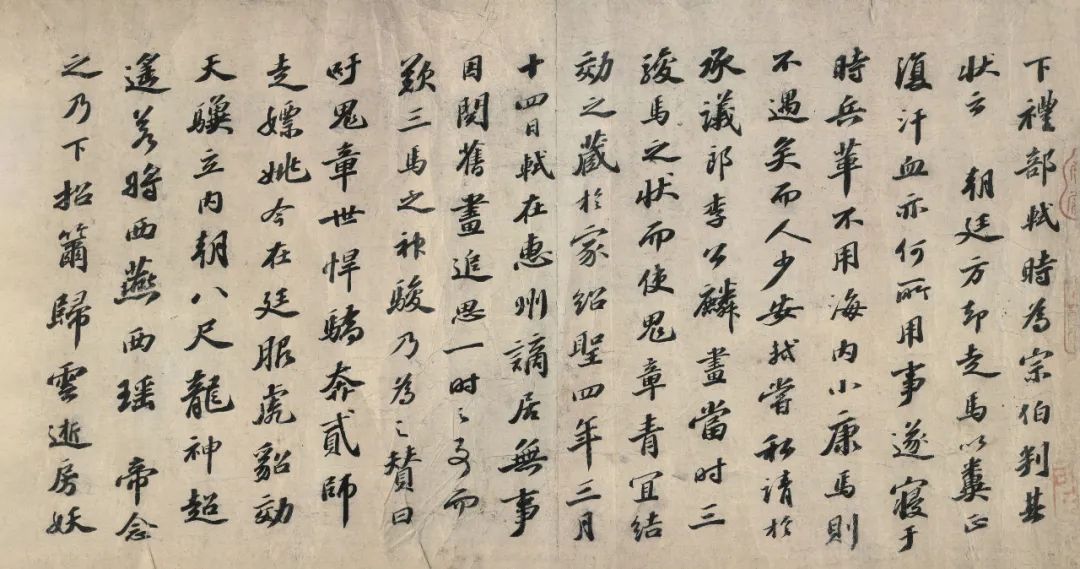 下禮部軾時為宗伯判其
狀云 朝廷方却走馬以糞正
復汗血亦何所用事遂寢于
時兵革不用海内小康馬則
不遇矣而人少安軾嘗私請於
承議郎李公麟畫當时三
駿馬之状而使鬼章青宜結
効之藏於家紹聖四年三月
十四日軾在惠州謫居無事
因閱舊畫追思一时之事而
歎三馬之神駿乃為之賛曰
吁鬼章世悍驕奔貳師
走嫖姚今在廷服虎貂効
天驥立内朝八尺龍神超
遥若將西燕西瑶帝念
之乃下招籋歸雲逝房妖